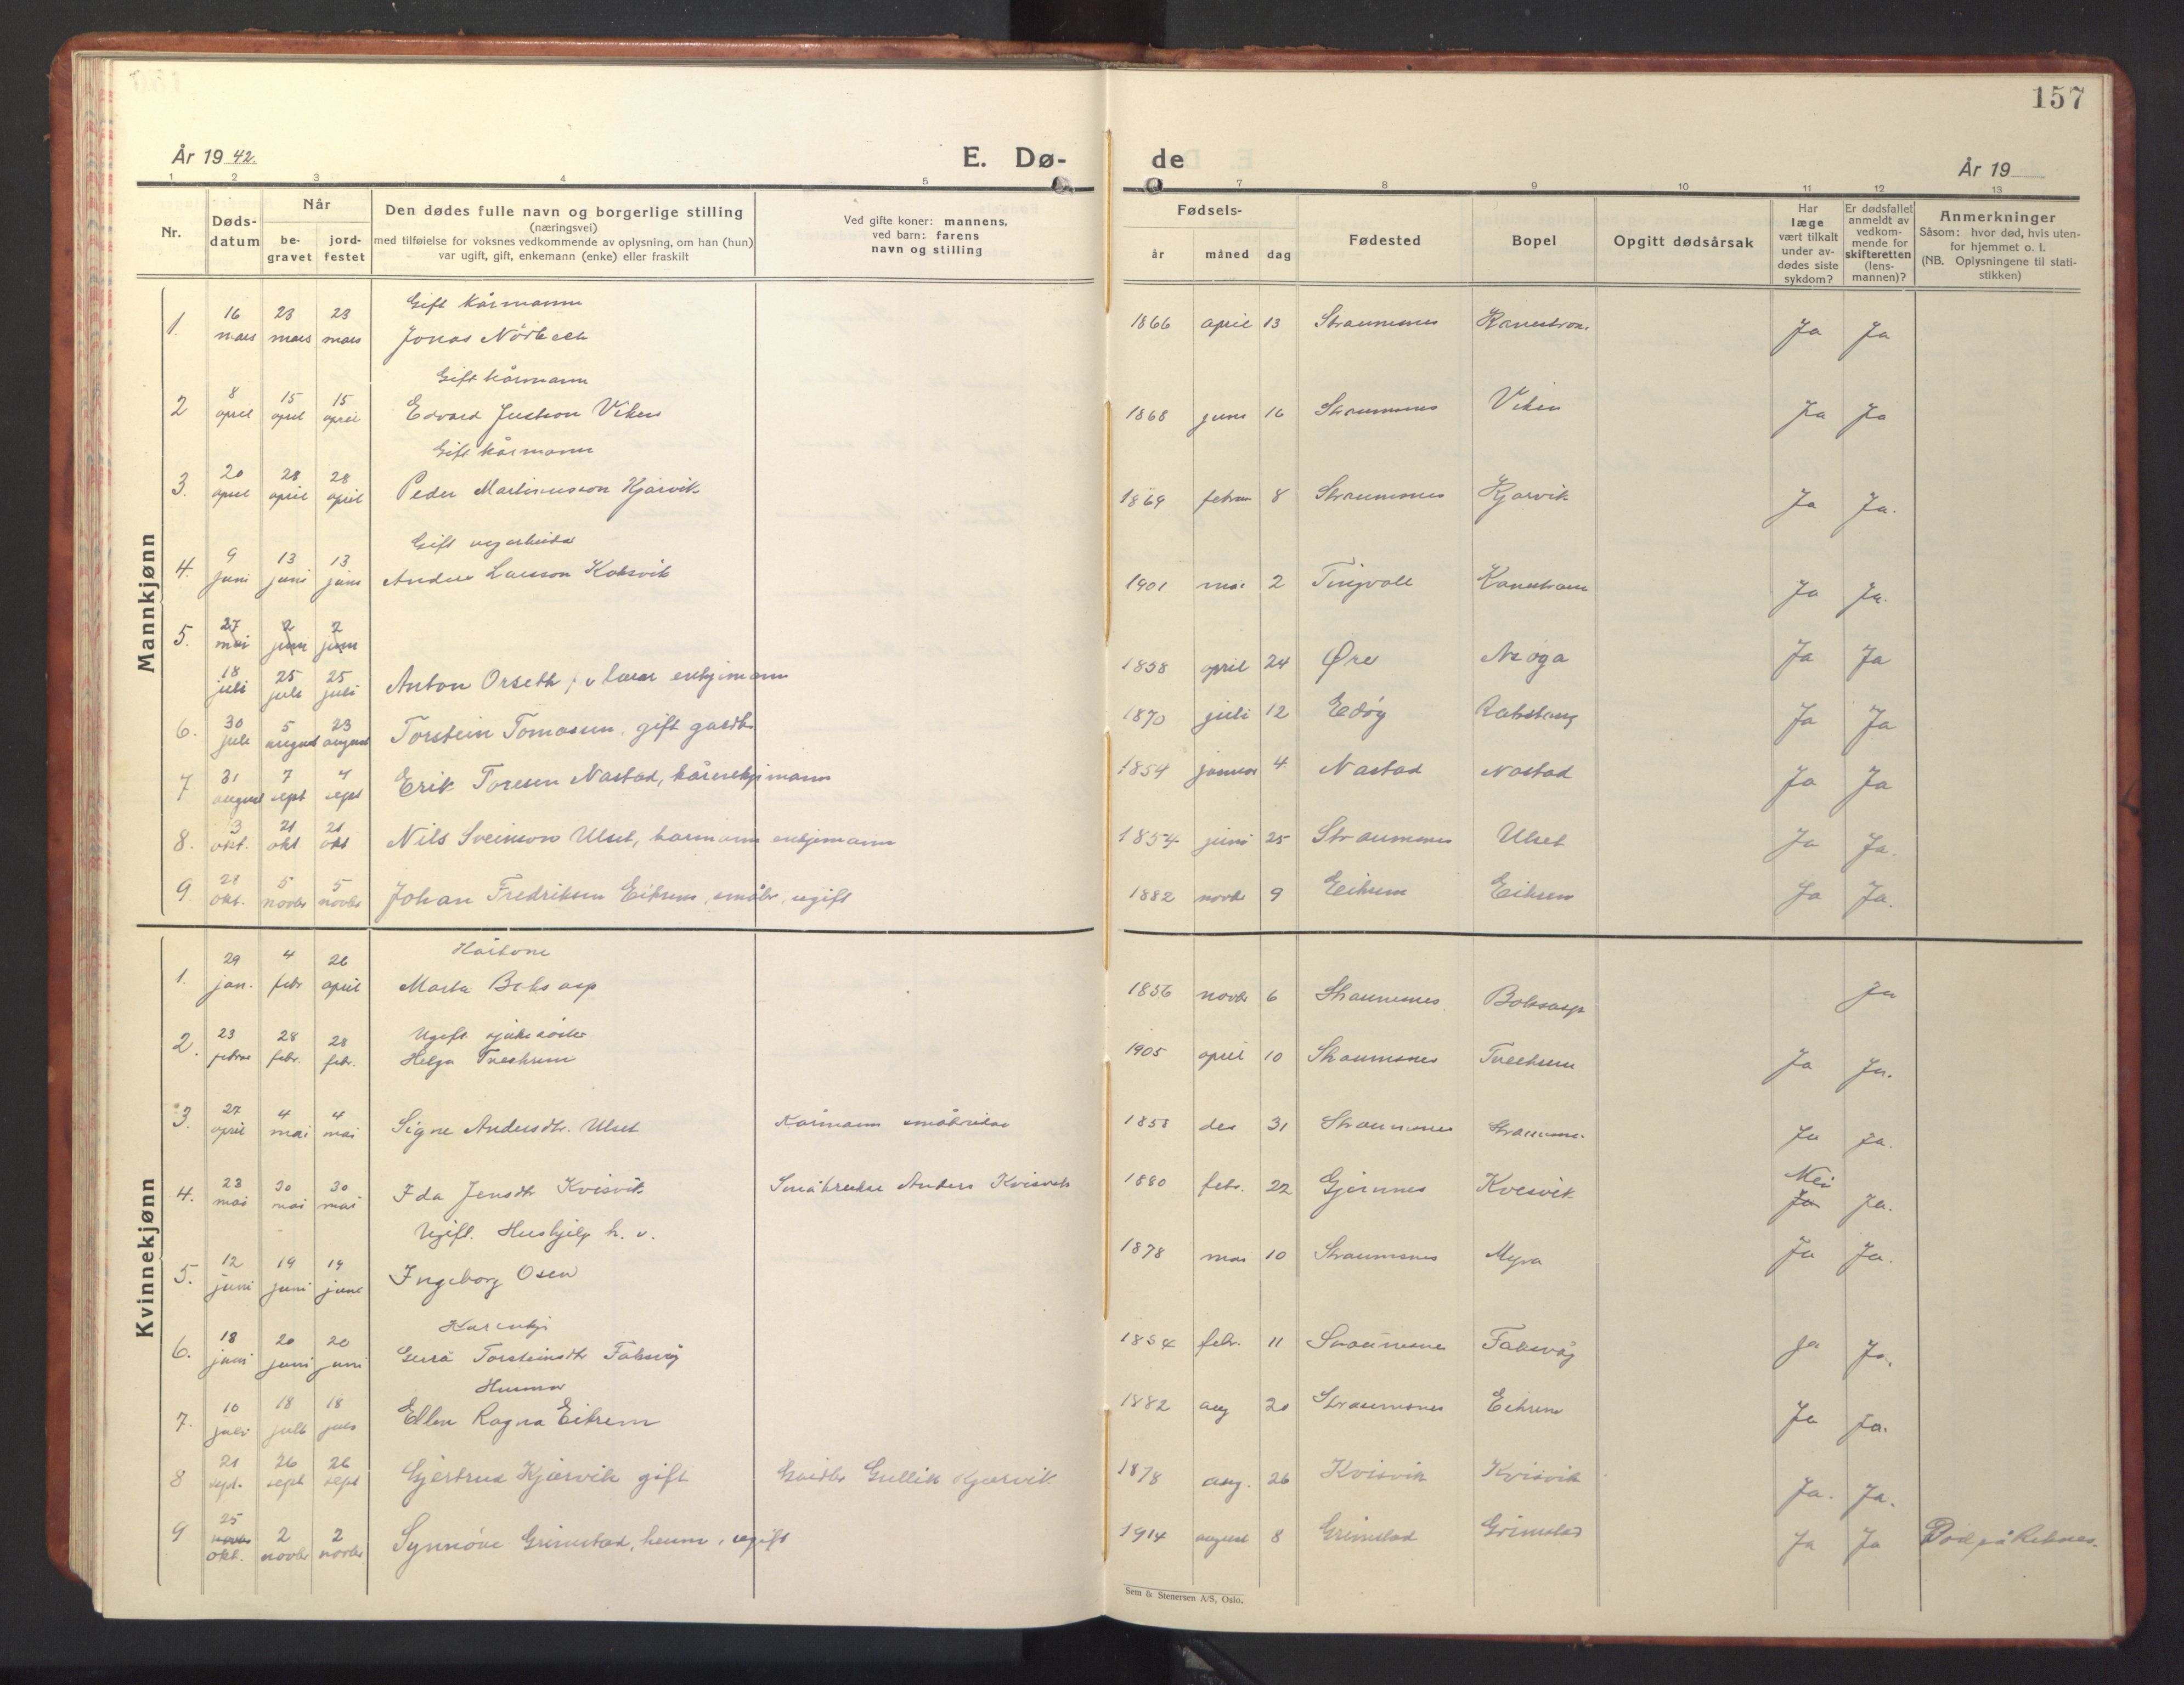 157
År 19 42. E. Dø- de År 19
1 2 3 4 5 7 8 9 10 11 12 13
Nr. Døds-datum Når be-gravet jord-festet Den dødes fulle navn og borgerlige stilling (næringsvei) med tilføielse for voksnes vedkommende av oplysning, om han (hun) var ugift, gift, enkemann (enke) eller fraskilt Ved gifte koner: mannens, ved barn: farens navn og stilling Fødsels- år måned dag Fødested Bopel Opgitt dødsårsak Har læge vært tilkalt under av-dødes siste sykdom? Er dødsfallet anmeldt av vedkom-mende for skifteretten (lens-mannen)? Anmerkninger Såsom: hvor død, hvis uten-for hjemmet o. l. (NB. Oplysningene til stati-stikken)
Mannkjønn
Gift kårmann
1. 16 mars 23 mars 23 mars Jonas 1866 april 13 Straumsnes Ja Ja
Gift kårmann
2 8 april 15 april 15 april Edvard Viken 1868 juni 16 Straumsnes Viken Ja Ja
Gift kårmann
3. 20 april 28 april 28 april Peder Martinusson Kjørvik 1869 februar 8 Straumsnes Kjørvik Ja Ja.
Gift
4. 9 juni 13 juni 13 juni Anders Larsson Koksvik 1901 mai 2 Tingvoll Kanestraum Ja Ja.
5. 27 mai 2 juni 2 juni
18 juli 25 juli 25 juli Anton Orseth, enkjemann 1858 april 24 Øre Ja Ja
6. 30 juli 5 august 23 august Torstein Tomassen, gift gardbr. 1870 juli 12 Edøy Ja Ja
7 31 august 7 sept sept Erik Toresen Nastad, kårenkjemann 1854 januar 4 Nastad Nastad Ja Ja
8. 3 okt. 21 okt 21 okt Nils Sveinson Ulset, kårmann enkjemann 1854 juni 25 Straumsnes Ulset Ja Ja.
9. 28 okt. 5 novbr 5 novbr Johan Fredriksen Eikrem, småbr, ugift 1882 novbr 9 Eikrem Eikrem Ja Ja.
Kvinnekjønn
Kårkone
1. 29 jan. 4 febr 26 april Marta Boksasp 1856 novbr 6 Straumsnes Boksasp Ja
Ugift sjuksöster
2. 23 februar 28 febr. 28 febr. Helga 1905 april 10 Straumsnes Ja Ja.
3. 27 april 4 mai 4 mai Signe Andersdtr. Ulset Kårmann småbruker des 31 Straumsnes Ja Ja.
4. 23 mai 30 mai 30 mai Ida Jensdtr Kvisvik Småbruker Anders Kvisvik 1880 febr. 22 Gjemnes Kvisvik Nei Ja Ja.
Ugift. Hushjelp h. v.
5. 12 juni 19 juni 19 juni Ingeborg Osen 1878 mai 10 Straumsnes Myra Ja Ja.
Kårenkje
6. 18 juni 20 juni 20 juni Torsteinsdtr Faksvåg 1854 febr. 11 Straumsnes Faksvåg Ja Ja.
Husmor
7. 10 juli 18 juli 18 juli Ellen Ragna Eikrem 1882 aug 20 Straumsnes Eikrem Ja Ja.
8 21 sept. 26 sept 26 sept Gjertrud Kjørvik gift Gardbr Gullik Kjørvik 1878 aug. 26 Kvisvik Kvisvik Ja. Ja.
9 25 novbr okt. 2 novbr 2 novbr. Synnöve Grimstad, heim, ugift 1914 august 8 Grimstad Grimstad Ja Ja Död på
Sem & Stenersen A/S, Oslo.